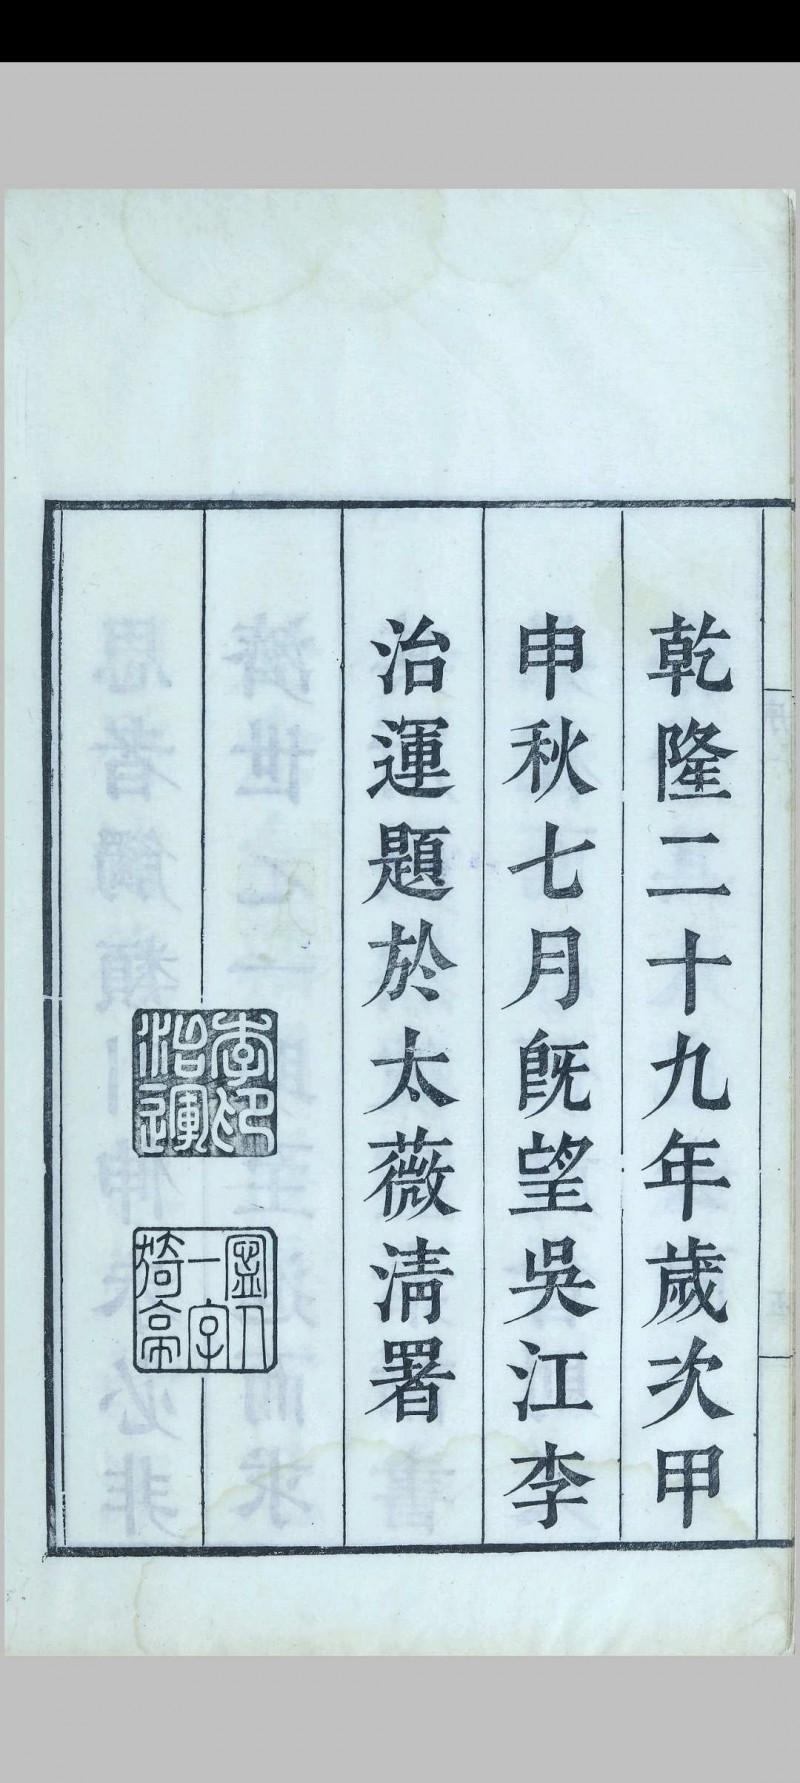 乾隆二十九年歲次甲
申秋七月旣望吳江李
治運題於太薇淸署
李印治運
一字